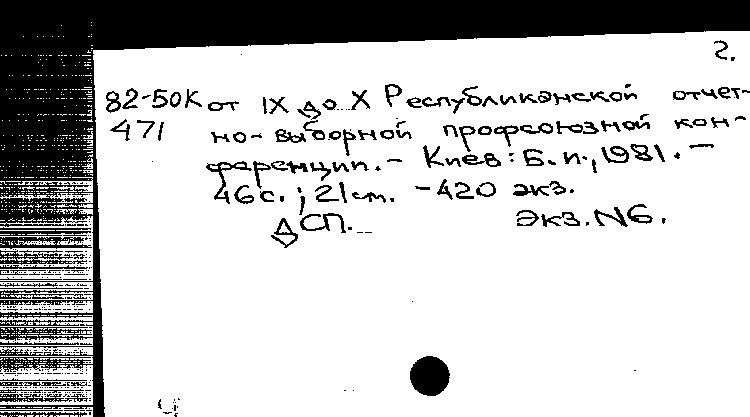 2.
82-50К от IX до X Республиканской отчет-
471 но-выборной профсоюзной кон-
ференции. - Киев: Б.и., 1981. -
46с.; 21см. - 420 экз.
ДСП. Экз. N6.
4